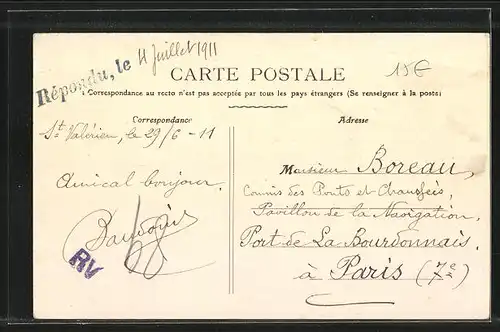 Répondu, le 4 Juillet 1911
15€
CARTE POSTALE
a Correspondance au recto n'est pas acceptée par tous les pays étrangers (Se renseigner à la poste)
Correspondance
St Valérien, le 29/6 - 11
Amical bonjour.
RV
Adresse
Monsieur Boreau,
Commis des Ponts et Chaussées
Pavillon de la Navigation.
Port de La Bourdonnais.
à Paris (7e)